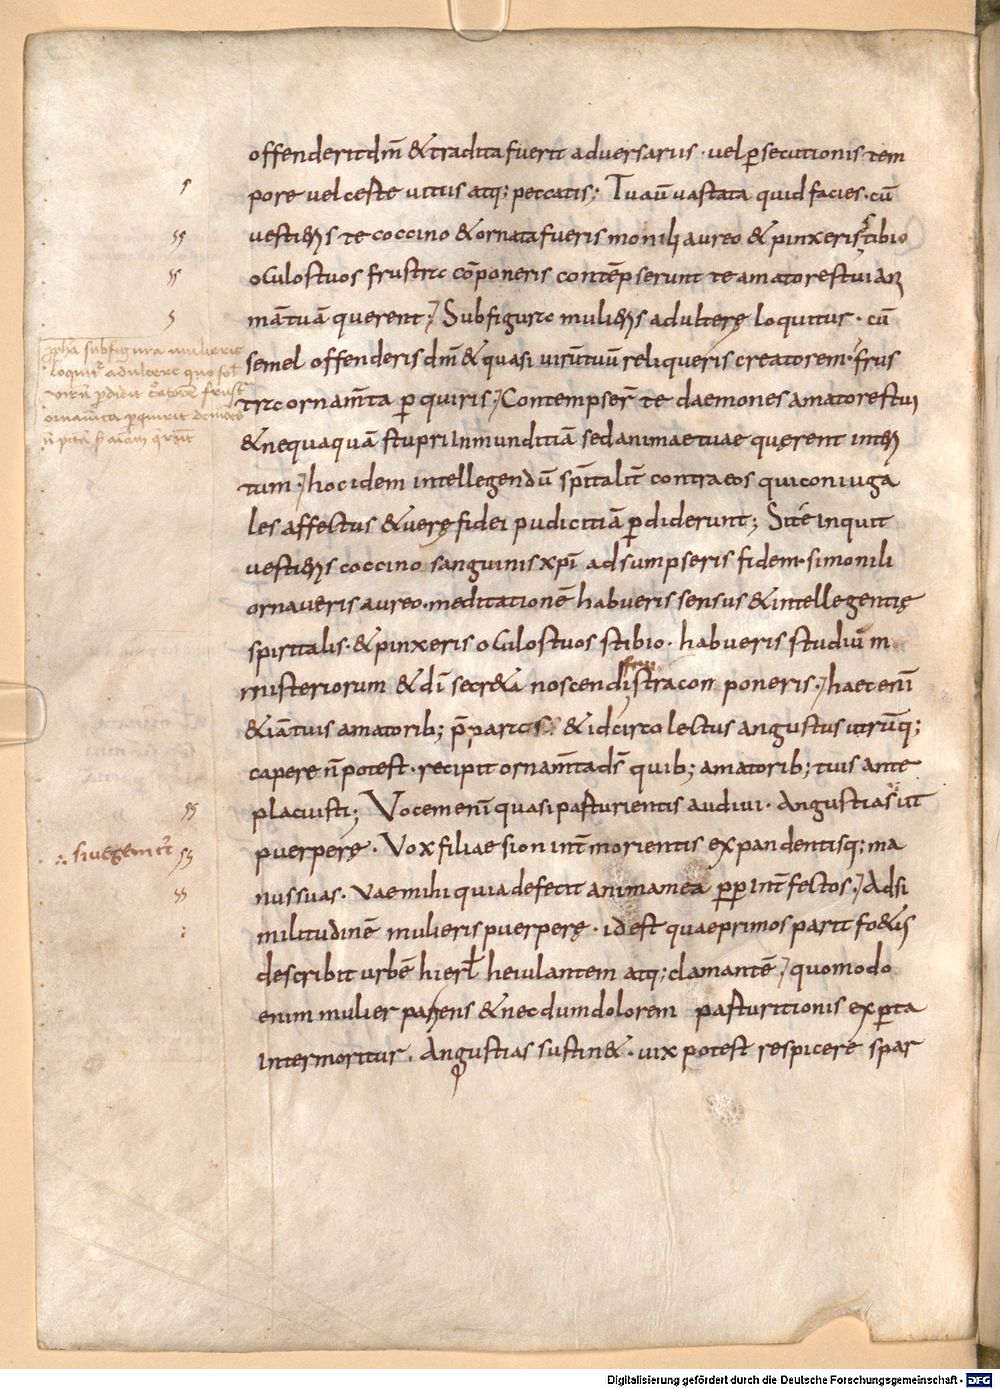 offenderit dm̄ & tradita fuerit adversariis · vel p̄secutionis tem
pore vel ceste vitiis atq; peccatis; Tu aū vastata quid facies · cū
vestieris te coccino & ornata fueris monili aureo & pinxeris stibio
oculos tuos frustra cōponeris contēpserunt te amatores tui ani
mā tuā querent; Sub figura mulieris adulterę loquitur · cū
semel offenderis dm̄ & quasi virū tuū reliqueris creatorem · frus
tra ornam̄ta p̄quiris; Contempser̄ te daemones amatores tui
& nequaquā stupri inmunditiā sed animae tuae quęrent interi
tum; hoc idem intellegendū sp̄italit̄ contra eos qui coniuga
les affectus & verę fidei pudicitiā p̄diderunt; Si te inquit
vestieris coccino sanguinis xp̄i adsumpseris fidem · si monili
ornaveris aureo · meditationē habueris sensus & intellegentię
spiritalis · & pinxeris oculos tuos stibio · habueris studiū m
misteriorum & dī secr&a noscendi frustra componeris; haec enī
& iā tuis amatorib; p̄parcas & idcirco lectus angustus utrūq;
capere n̄ potest · recipit ornam̄ta ds̄ quib; amatorib; tuis ante
placuisti; Vocem enī quasi parturientis audivi · Angustias ut
puerperę · Vox filiae sion int̄ morientis expandentisq; ma
nus suas · Vae mihi quia defecit anima mea pp̄ int̄fectos; Ad si
militudinē mulieris puerperę · id est quae primos parit fo&us
describit urbē hierl̄ heiulantem atq; clamantē; quomodo
enim mulier pariens & necdum dolorem parturitionis exp̄ta
intermoritur · Angustias sustin& · vix potest respicere spar
pph̄a sub figura mulieris
loquit̄ adultere que sol
virū p̄didit c̄atore frust̄
ornam̄ta p̄quirit demoēs
∴ sive gemit̄
Digitalisierung gefördert durch die Deutsche Forschungsgemeinschaft - DFG